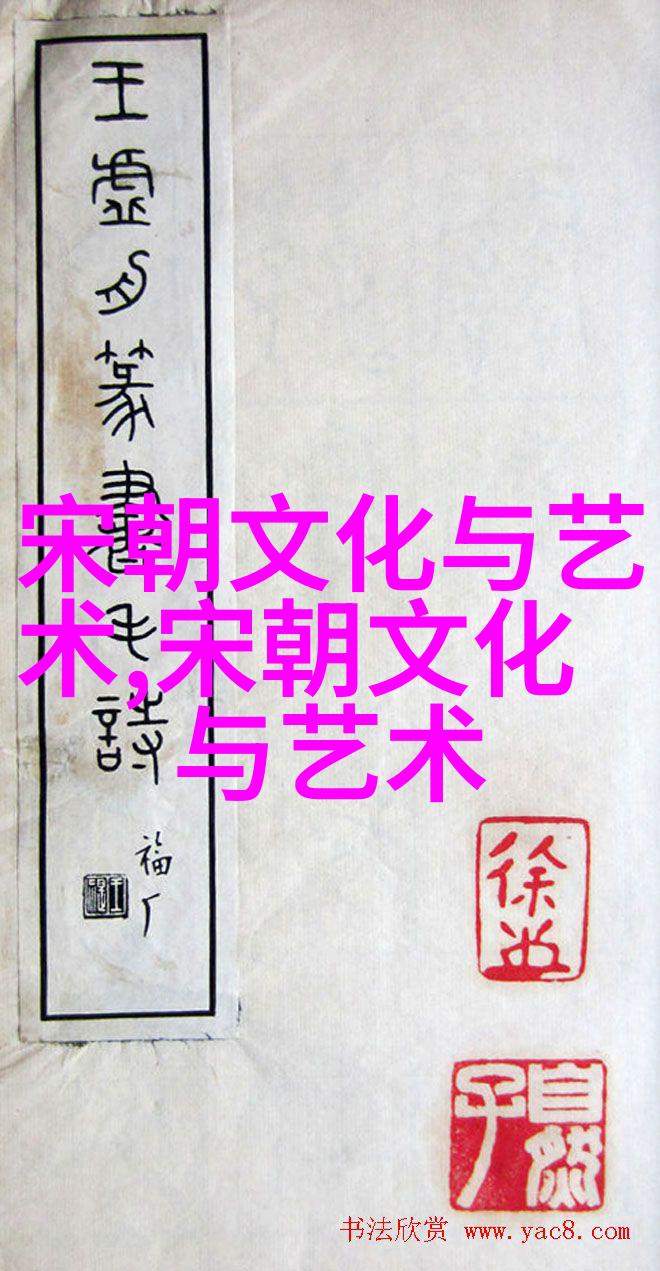 王虛舟篆書毛詩
福厂
宋朝文化与艺
术,宋朝文化
与艺术
徐
自然子
书法欣赏 www.yac8.com